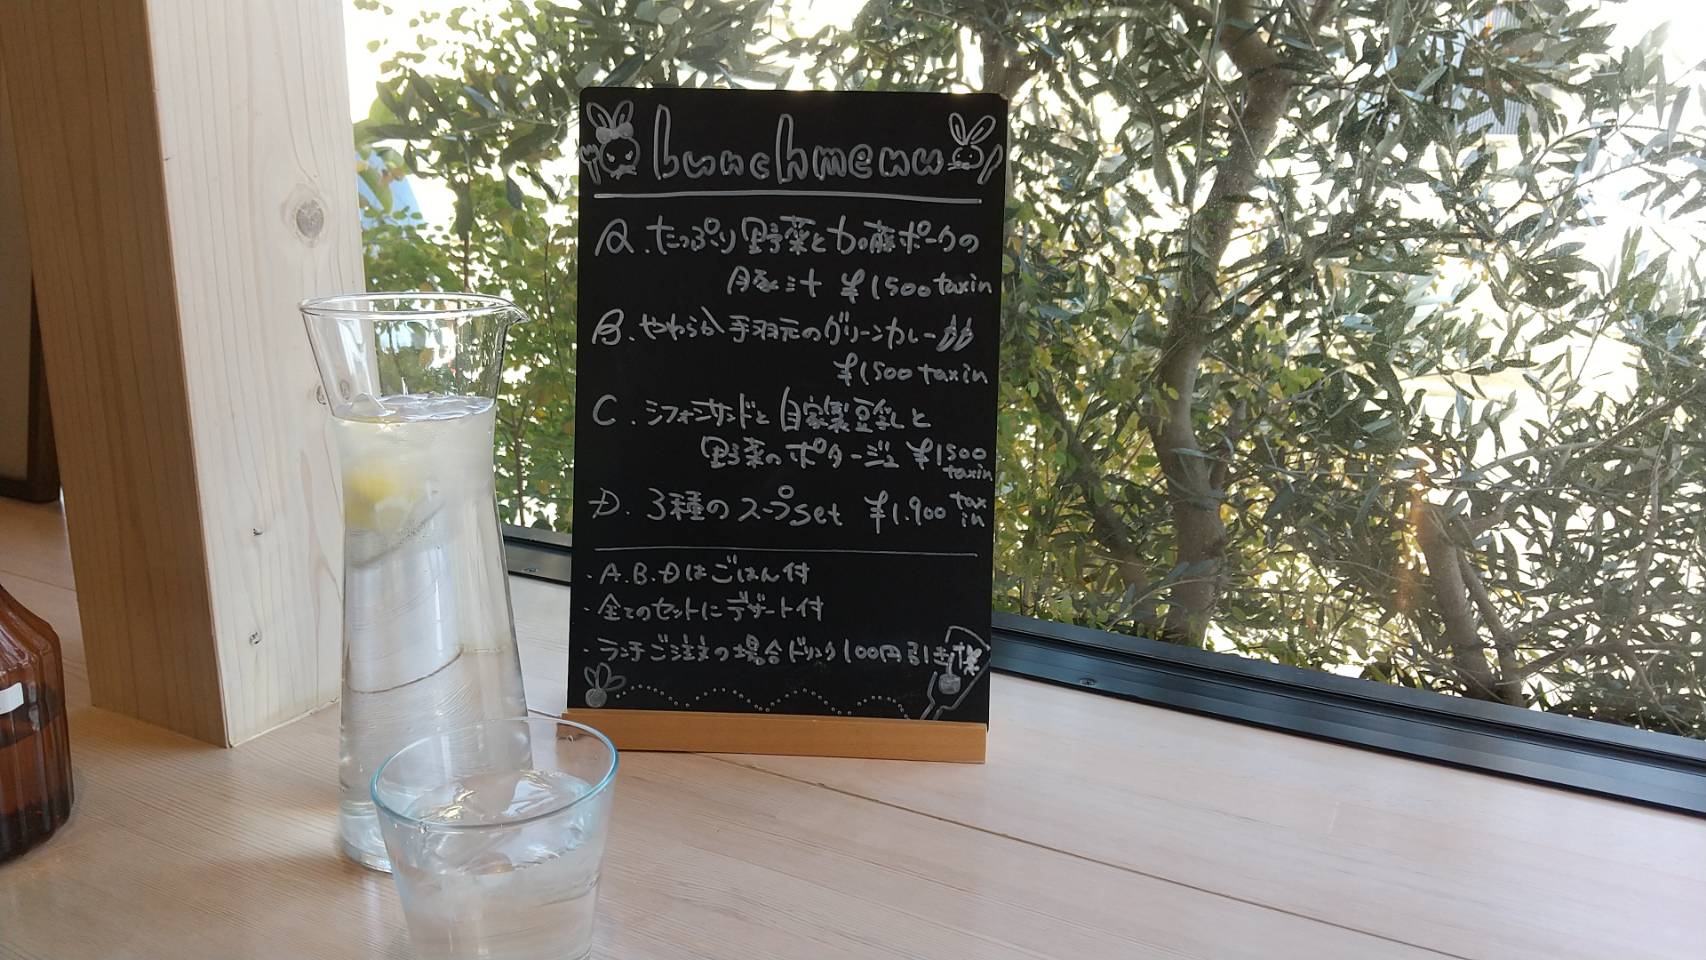 lunch menu
A.たっぷり野菜と加藤ポークの
豚汁 ¥1500 tax in
B.やわらか手羽元のグリーンカレー
¥1500 tax in
C.シフォンサンドと自家製豆乳と
野菜のポタージュ ¥1500
tax in
D.3種のスープset ¥1.900 tax
in
・A.B.Dはごはん付
・全てのセットにデザート付
・ランチご注文の場合ドリンク100円引き